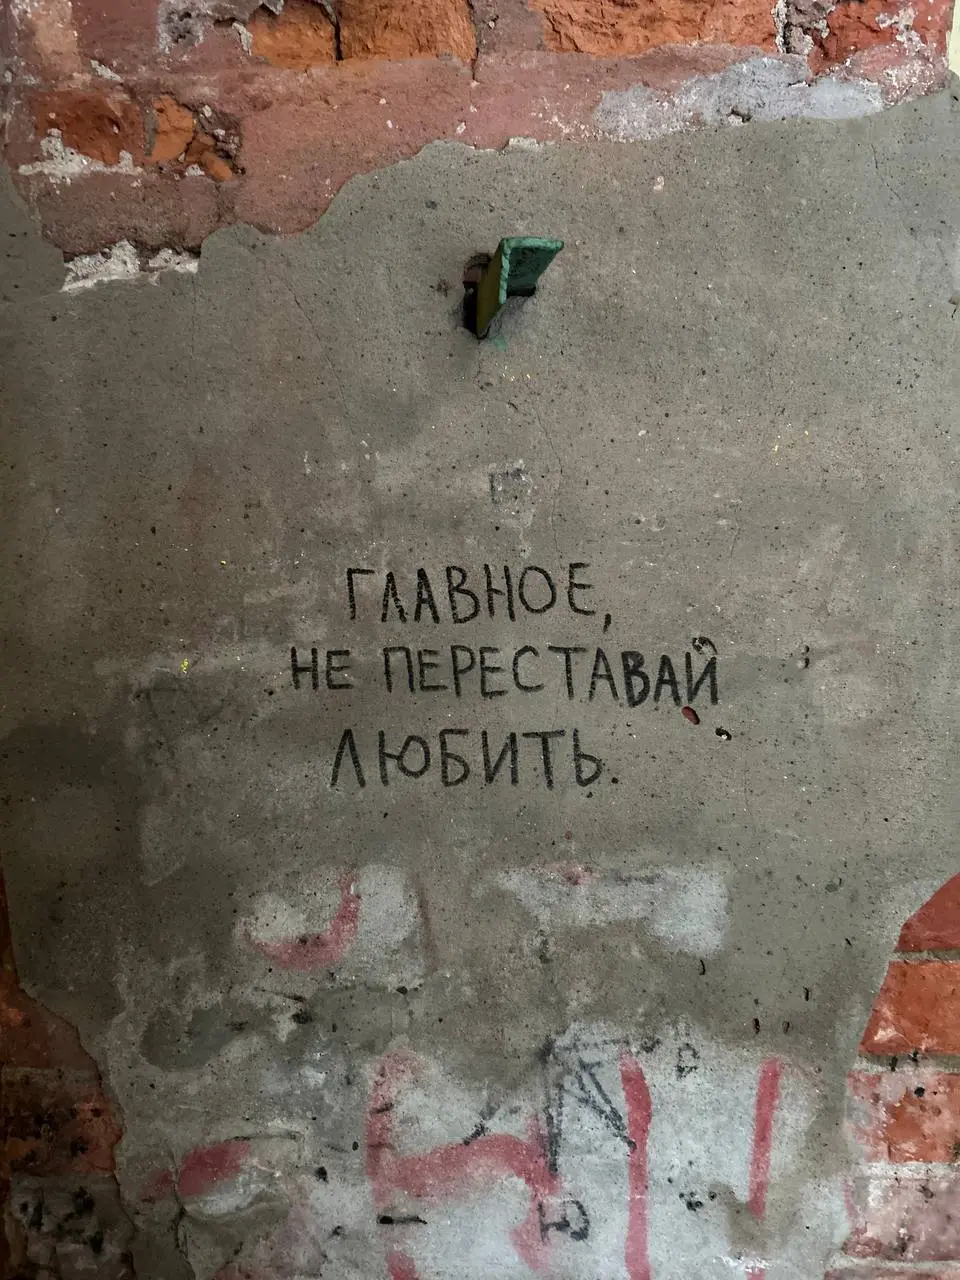 ГЛАВНОЕ,
НЕ ПЕРЕСТАВАЙ
ЛЮБИТЬ.